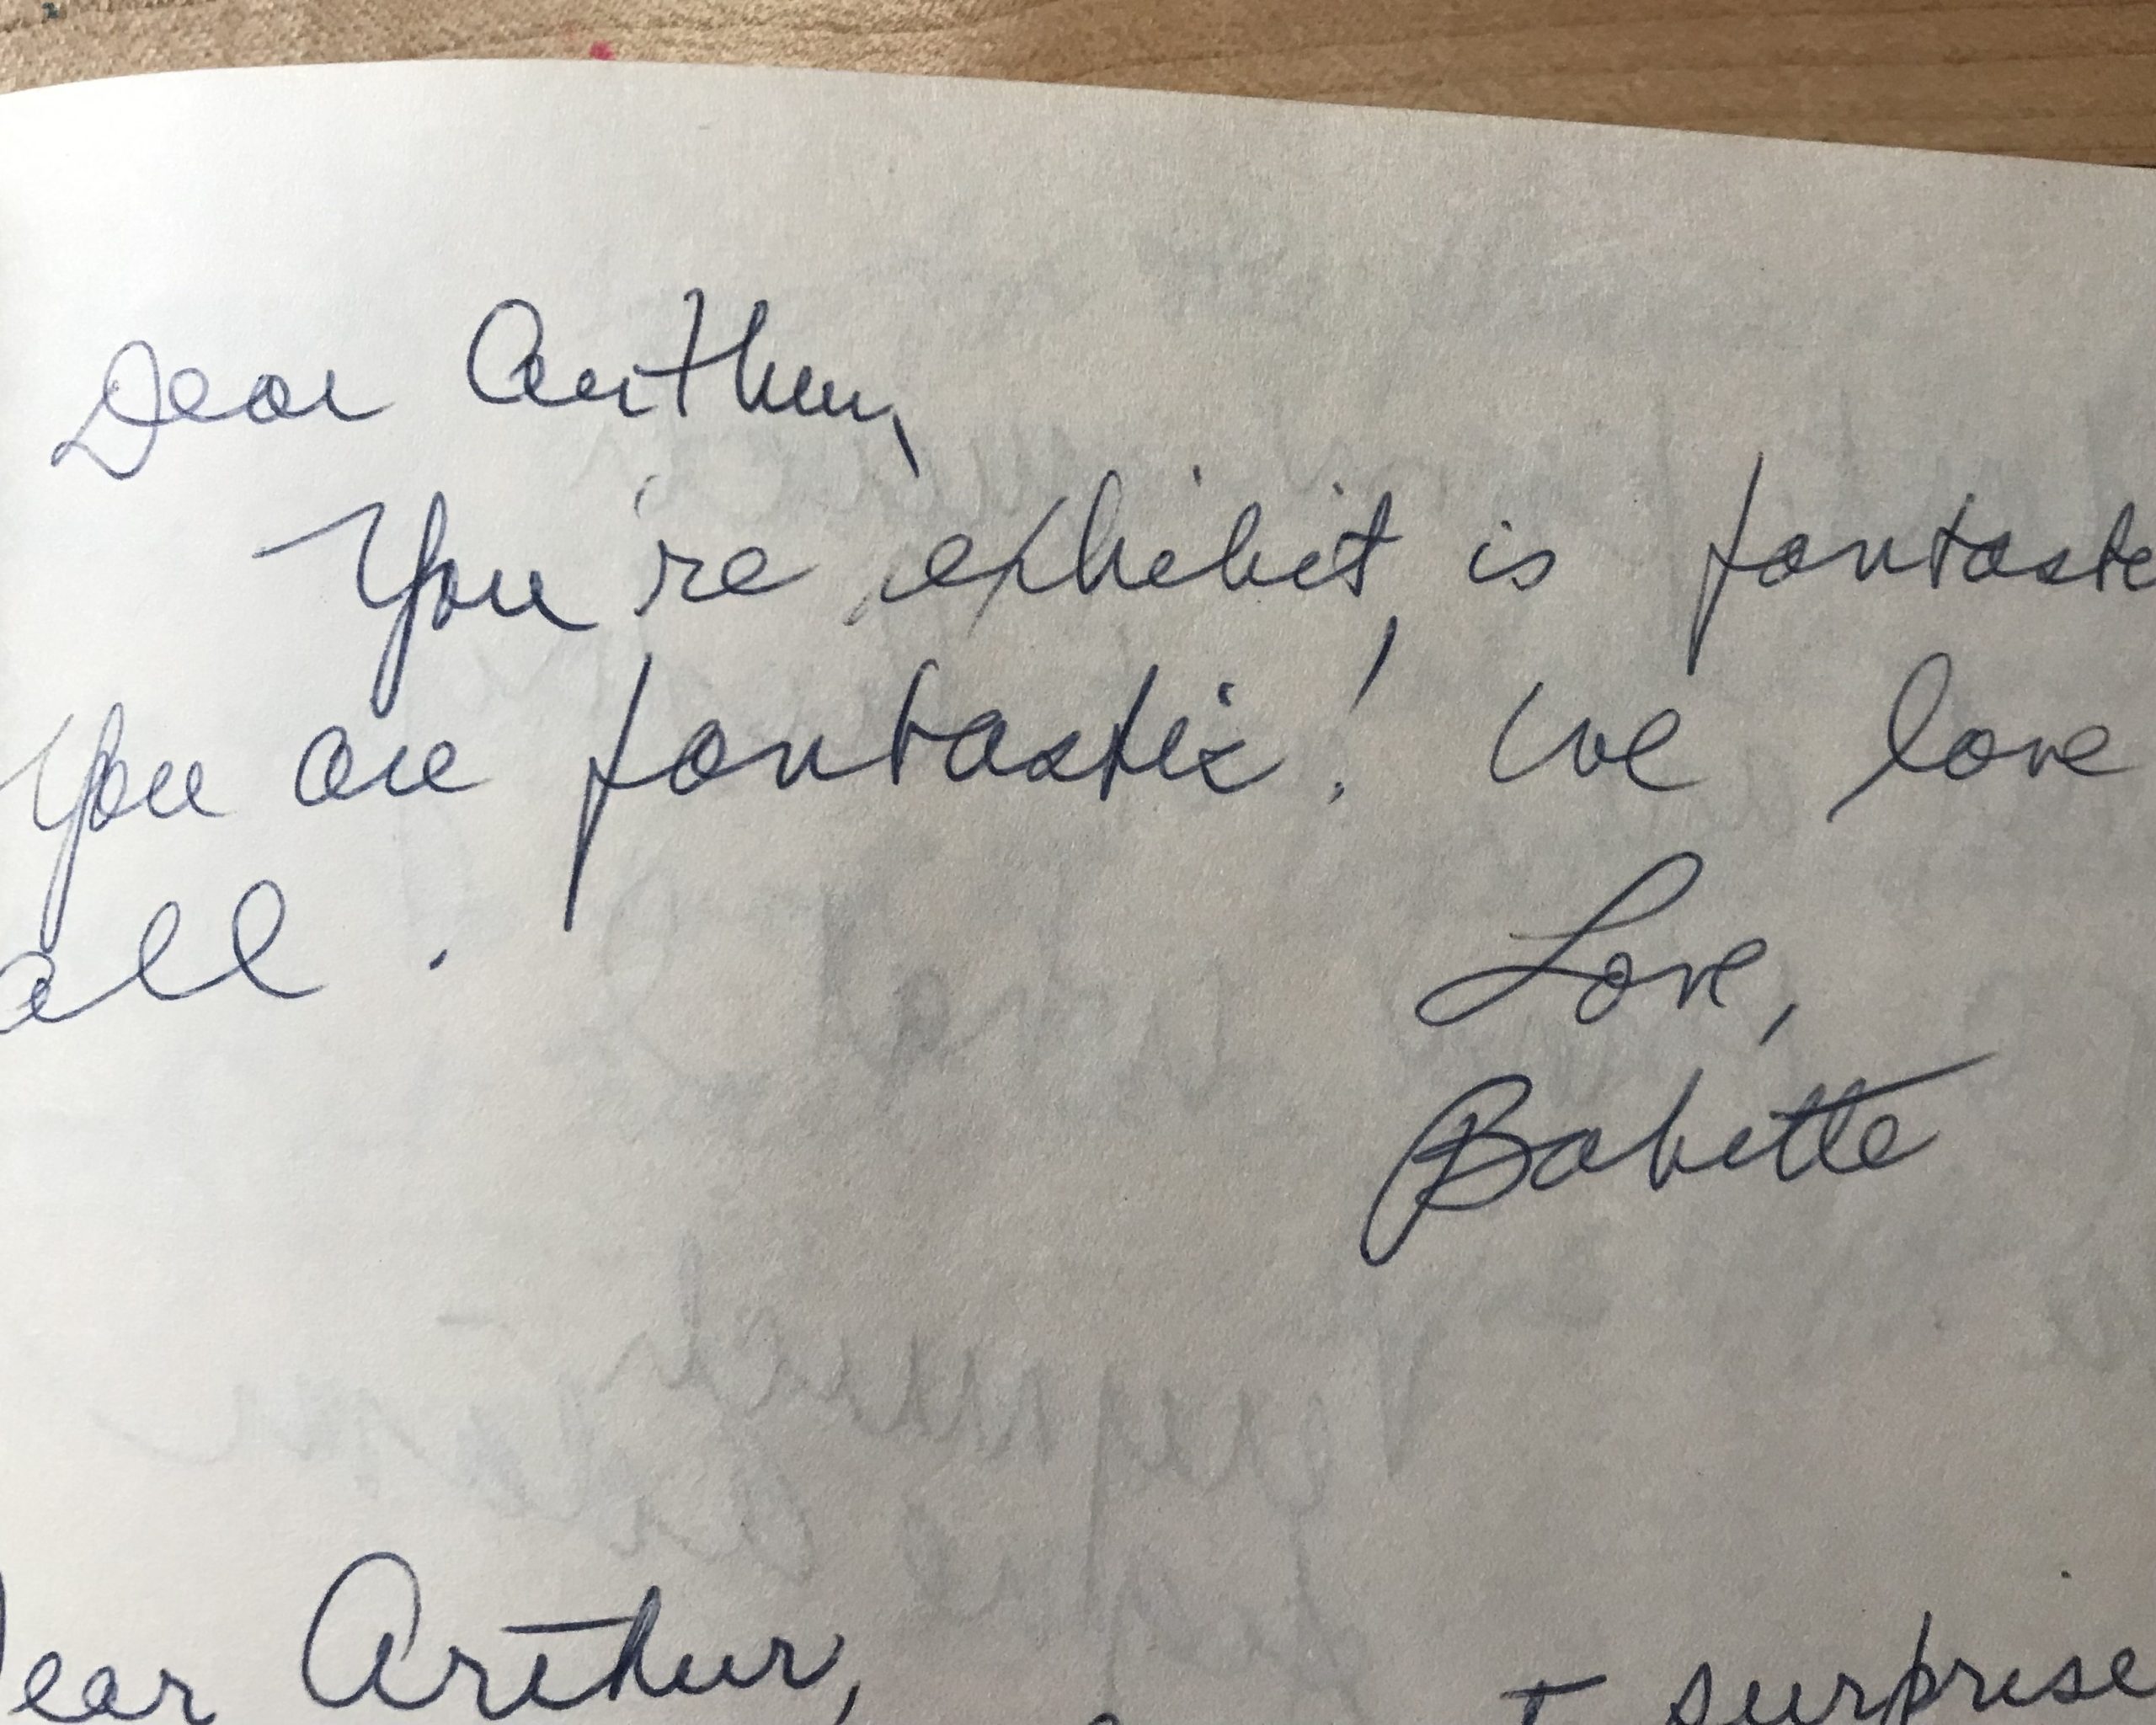 Dear Arthur,
You're exhibit, is fantast
You are fantastic! We love
all.
Love,
Babette
ear Arthur,
surprise